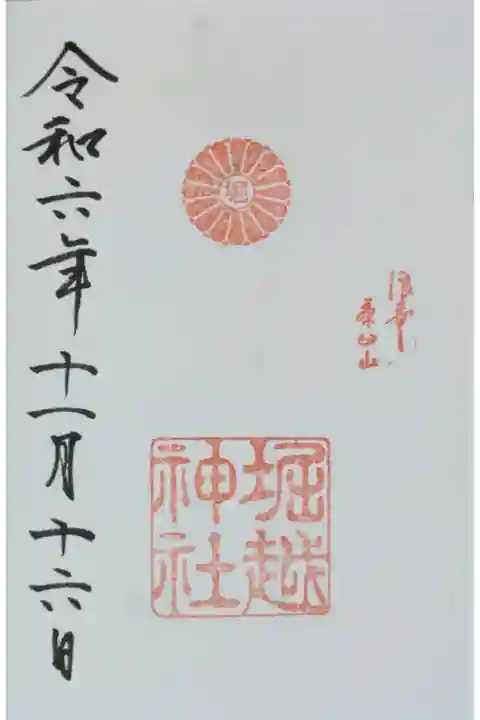 茶臼山
堀
堀越
神社
令和六年十一月十六日